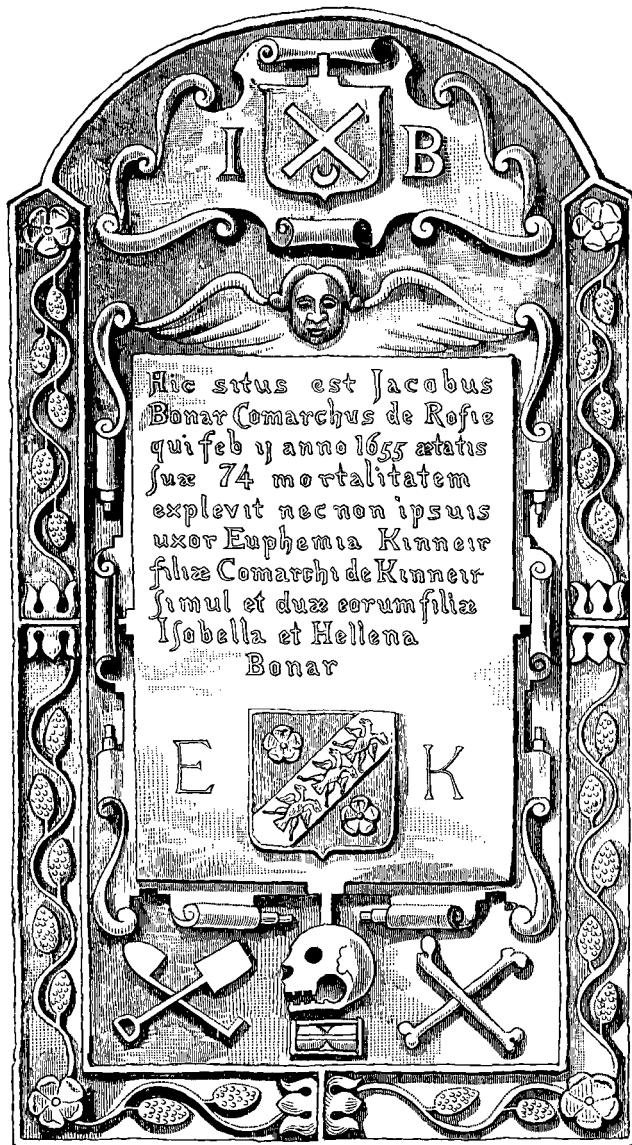 I B
Hic situs est Jacobus
Bonar Comarchus de Rosie
qui feb ij anno 1655 ætatis
suæ 74 mortalitatem
explevit nec non ipsuis
uxor Euphemia Kinneir
filiæ Comarchi de Kinneir
simul et duæ eorum filiæ
Isobella et Hellena
Bonar
E K